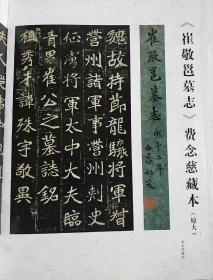 《崔敬邕墓志》费念慈藏本（原大）
崔敬邕墓志
魏故持節龍驤將軍督
營州諸軍事營州刺史
征虜將軍太中大夫臨
青男崔公之墓誌銘
祖秀才諱殊字敬異